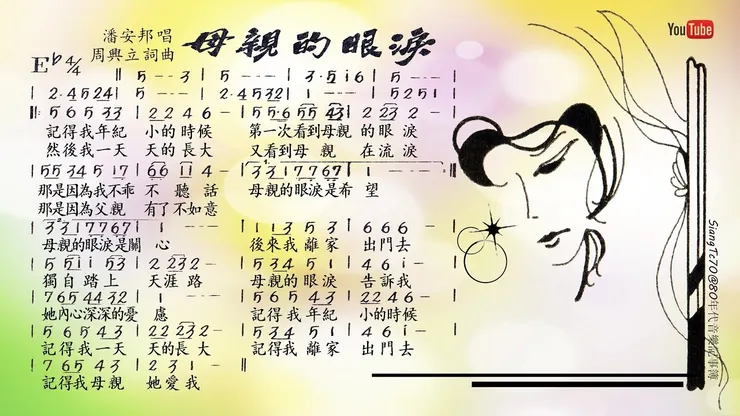 潘安邦唱
周興立詞曲
母親的眼淚
YouTube
E♭4/4
‖ 5 - - 3 | 5 - - - | 3·5 i 6 | 5 - - - |
| 2·4 5 2 4 | 5 - - - | 2·4 5 3 2 | 1 - - - | 5 2 5 1 |
‖: 5 6 5 3 3 | 2 2 4 6 - | 5 5·6 5 5 4 3 | 2 2 3 2 - |
記得我年紀 小的時候 第一次看到母親 的眼淚
然後我一天 天的長大 又看到母親 在流淚
| 5 5 3 4 5 1 7 | 6 6 1 1 4 - | 3 3 1 7 7 6 7 | 1 - - - :|
那是因為我不乖 不聽話 母親的眼淚是希 望
那是因為父親 有了不如意
| 3 3 1 7 7 6 7 | 1 - - - | 1 1 3 5 3 | 6 6 6 - |
母親的眼淚是關 心 後來我離家 出門去
| 5 5 5 i 5 3 | 2 2 3 2 - | 5 3 4 5 1 | 4 6 i - |
獨自踏上 天涯路 母親的眼淚 告訴我
| 7 6 5 4 4 3 2 | 1 - - - | 5 6 5 4 3 | 2 2 4 6 - |
她內心深深的憂 慮 記得我年紀 小的時候
| 5 6 5 4 3 | 2 2 2 3 2 - | 5 3 4 5 1 | 4 6 i - |
記得我一天 天的長大 記得我離家 出門去
| 7 6 5 4 3 | 2 3 1 - ‖
記得我母親 她愛我
SiangTc70@80年代音樂記事簿